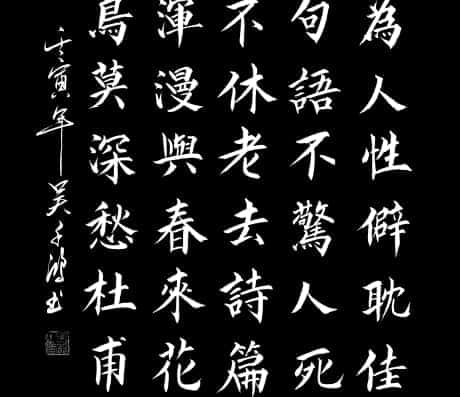 為人性僻耽佳
句語不驚人死
不休老去詩篇
渾漫與春來花
鳥莫深愁杜甫
壬寅年吳千鴻书